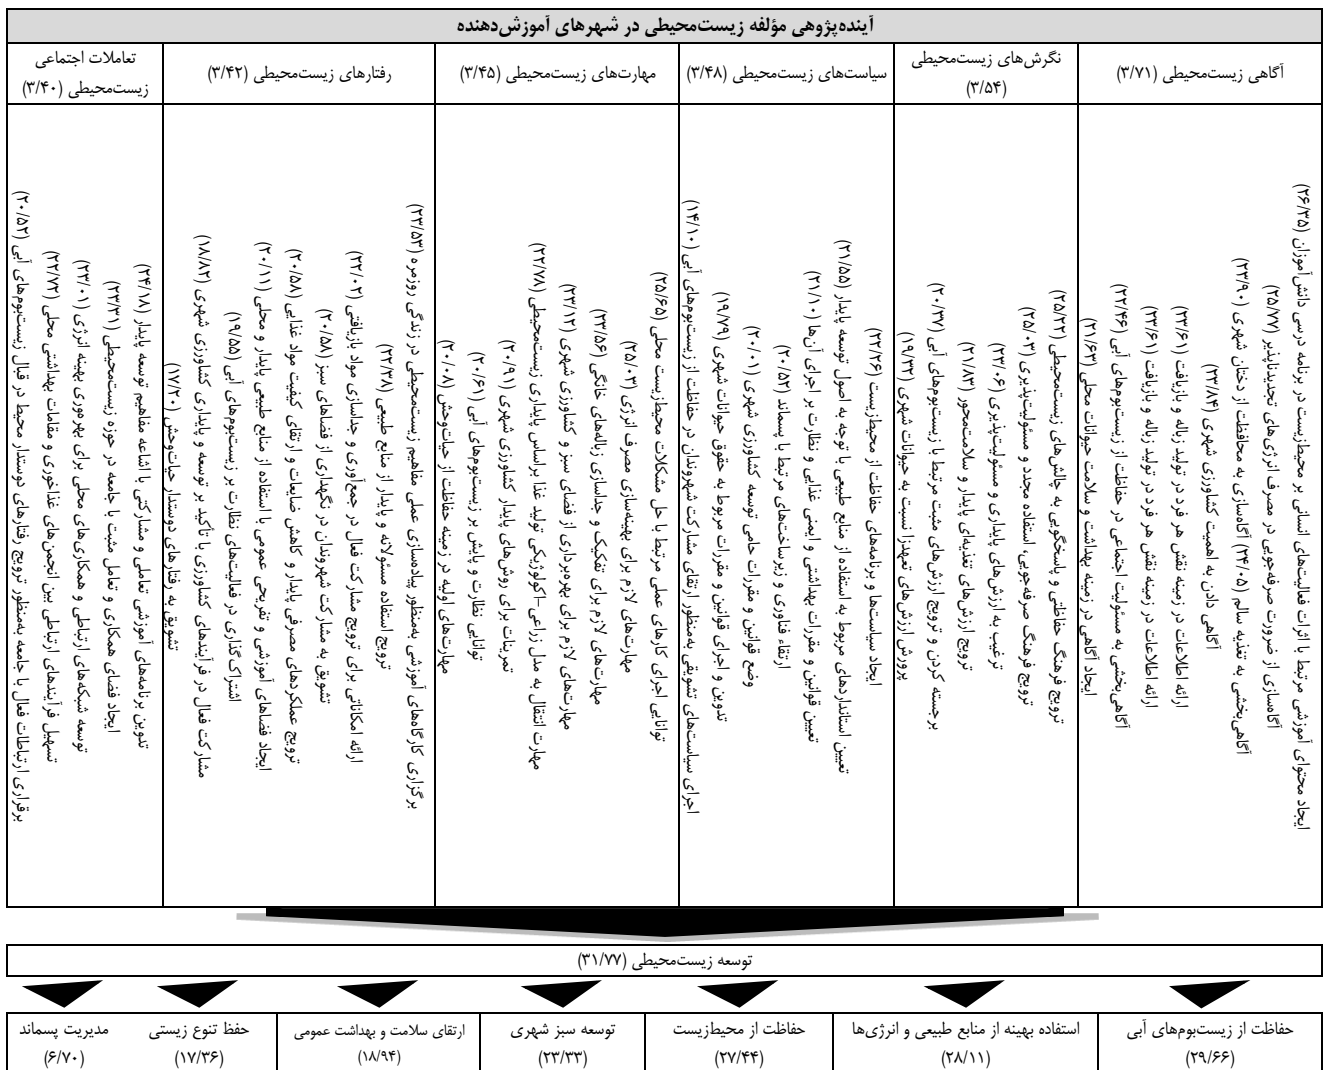 آینده‌پژوهی مؤلفه زیست‌محیطی در شهرهای آموزش‌دهنده
آگاهی زیست‌محیطی (۳/۷۱)
نگرش‌های زیست‌محیطی
(۳/۵۴)
سیاست‌های زیست‌محیطی (۳/۴۸)
مهارت‌های زیست‌محیطی (۳/۴۵)
رفتارهای زیست‌محیطی (۳/۴۲)
تعاملات اجتماعی
زیست‌محیطی (۳/۴۰)
ایجاد محتوای آموزشی مرتبط با اثرات فعالیت‌های انسانی بر محیط‌زیست در برنامه درسی دانش‌آموزان (۲۶/۳۵)
آگاه‌سازی از ضرورت صرفه‌جویی در مصرف انرژی‌های تجدیدناپذیر (۲۵/۷۷)
آگاهی‌بخشی به تغذیه سالم (۲۴/۰۵) آگاه‌سازی به محافظت از دختان شهری (۲۳/۹۰)
آگاهی دادن به اهمیت کشاورزی شهری (۲۳/۸۴)
ارائه اطلاعات در زمینه نقش هر فرد در تولید زباله و بازیافت (۲۳/۶۱)
ارائه اطلاعات در زمینه نقش هر فرد در تولید زباله و بازیافت (۲۳/۶۱)
آگاهی‌بخشی به مسئولیت اجتماعی در حفاظت از زیست‌بوم‌های آبی (۲۲/۴۶)
ایجاد آگاهی در زمینه بهداشت و سلامت حیوانات محلی (۲۱/۶۳)
ترویج فرهنگ حفاظتی و پاسخگویی به چالش‌های زیست‌محیطی (۲۵/۲۲)
ترویج فرهنگ صرفه‌جویی، استفاده مجدد و مسئولیت‌پذیری (۲۵/۰۲)
ترغیب به ارزش‌های پایداری و مسئولیت‌پذیری (۲۳/۰۶)
ترویج ارزش‌های تغذیه‌ای پایدار و سلامت‌محور (۲۱/۸۳)
برجسته کردن و ترویج ارزش‌های مثبت مرتبط با زیست‌بوم‌های آبی (۲۰/۳۷)
پرورش ارزش‌های تعهدزا نسبت به حیوانات شهری (۱۹/۳۲)
ایجاد سیاست‌ها و برنامه‌های حفاظت از محیط‌زیست (۲۲/۲۶)
تعیین استانداردهای مربوط به استفاده از منابع طبیعی با توجه به اصول توسعه پایدار (۲۱/۵۵)
تعیین قوانین و مقررات بهداشتی و ایمنی غذایی و نظارت بر اجرای آن‌ها (۲۱/۱۰)
ارتقاء فناوری و زیرساخت‌های مرتبط با پسماند (۲۰/۵۲)
وضع قوانین و مقررات حامی توسعه کشاورزی شهری (۲۰/۰۱)
تدوین و اجرای قوانین و مقررات مربوط به حقوق حیوانات شهری (۱۹/۷۹)
اجرای سیاست‌های تشویقی به‌منظور ارتقای مشارکت شهروندان در حفاظت از زیست‌بوم‌های آبی (۱۴/۱۰)
توانایی اجرای کارهای عملی مرتبط با حل مشکلات محیط‌زیست محلی (۲۵/۶۵)
مهارت‌های لازم برای بهینه‌سازی مصرف انرژی (۲۵/۰۳)
مهارت‌های لازم برای تفکیک و جداسازی زباله‌های خانگی (۲۳/۵۶)
مهارت‌های لازم برای بهره‌برداری از فضای سبز و کشاورزی شهری (۲۳/۱۲)
مهارت انتقال به مدل زراعی–اکولوژیکی تولید غذا براساس پایداری زیست‌محیطی (۲۲/۷۸)
تمرینات برای روش‌های پایدار کشاورزی شهری (۲۰/۹۱)
توانایی نظارت و پایش بر زیست‌بوم‌های آبی (۲۰/۶۱)
مهارت‌های اولیه در زمینه حفاظت از حیات‌وحش (۲۰/۰۸)
برگزاری کارگاه‌های آموزشی به‌منظور پیاده‌سازی عملی مفاهیم زیست‌محیطی در زندگی روزمره (۲۳/۵۳)
ترویج استفاده مسئولانه و پایدار از منابع طبیعی (۲۲/۳۸)
ارائه امکاناتی برای ترویج مشارکت فعال در جمع‌آوری و جداسازی مواد بازیافتی (۲۲/۰۲)
تشویق به مشارکت شهروندان در نگهداری از فضاهای سبز (۲۰/۵۸)
ترویج عملکردهای مصرفی پایدار و کاهش ضایعات و ارتقای کیفیت مواد غذایی (۲۰/۵۸)
ایجاد فضاهای آموزشی و تفریحی عمومی با استفاده از منابع طبیعی پایدار و محلی (۲۰/۱۱)
اشتراک‌گذاری در فعالیت‌های نظارت بر زیست‌بوم‌های آبی (۱۹/۵۵)
مشارکت فعال در فرآیندهای کشاورزی با تأکید بر توسعه و پایداری کشاورزی شهری (۱۸/۸۲)
تشویق به رفتارهای دوستدار حیات‌وحش (۱۷/۲۰)
تدوین برنامه‌های آموزشی تعاملی و مشارکتی با اشاعه مفاهیم توسعه پایدار (۲۴/۱۸)
ایجاد فضای همکاری و تعامل مثبت با جامعه در حوزه زیست‌محیطی (۲۳/۳۱)
توسعه شبکه‌های ارتباطی و همکاری‌های محلی برای بهره‌وری بهینه انرژی (۲۳/۰۱)
تسهیل فرآیندهای ارتباطی بین انجمن‌های غذاخوری و مقامات بهداشتی محلی (۲۲/۷۲)
برقراری ارتباطات فعال با جامعه به‌منظور ترویج رفتارهای دوستدار محیط در قبال زیست‌بوم‌های آبی (۲۰/۵۲)
توسعه زیست‌محیطی (۳۱/۷۷)
حفاظت از زیست‌بوم‌های آبی
(۲۹/۶۶)
استفاده بهینه از منابع طبیعی و انرژی‌ها
(۲۸/۱۱)
حفاظت از محیط‌زیست
(۲۷/۴۴)
توسعه سبز شهری
(۲۳/۳۳)
ارتقای سلامت و بهداشت عمومی
(۱۸/۹۴)
حفظ تنوع زیستی
(۱۷/۳۶)
مدیریت پسماند
(۶/۷۰)